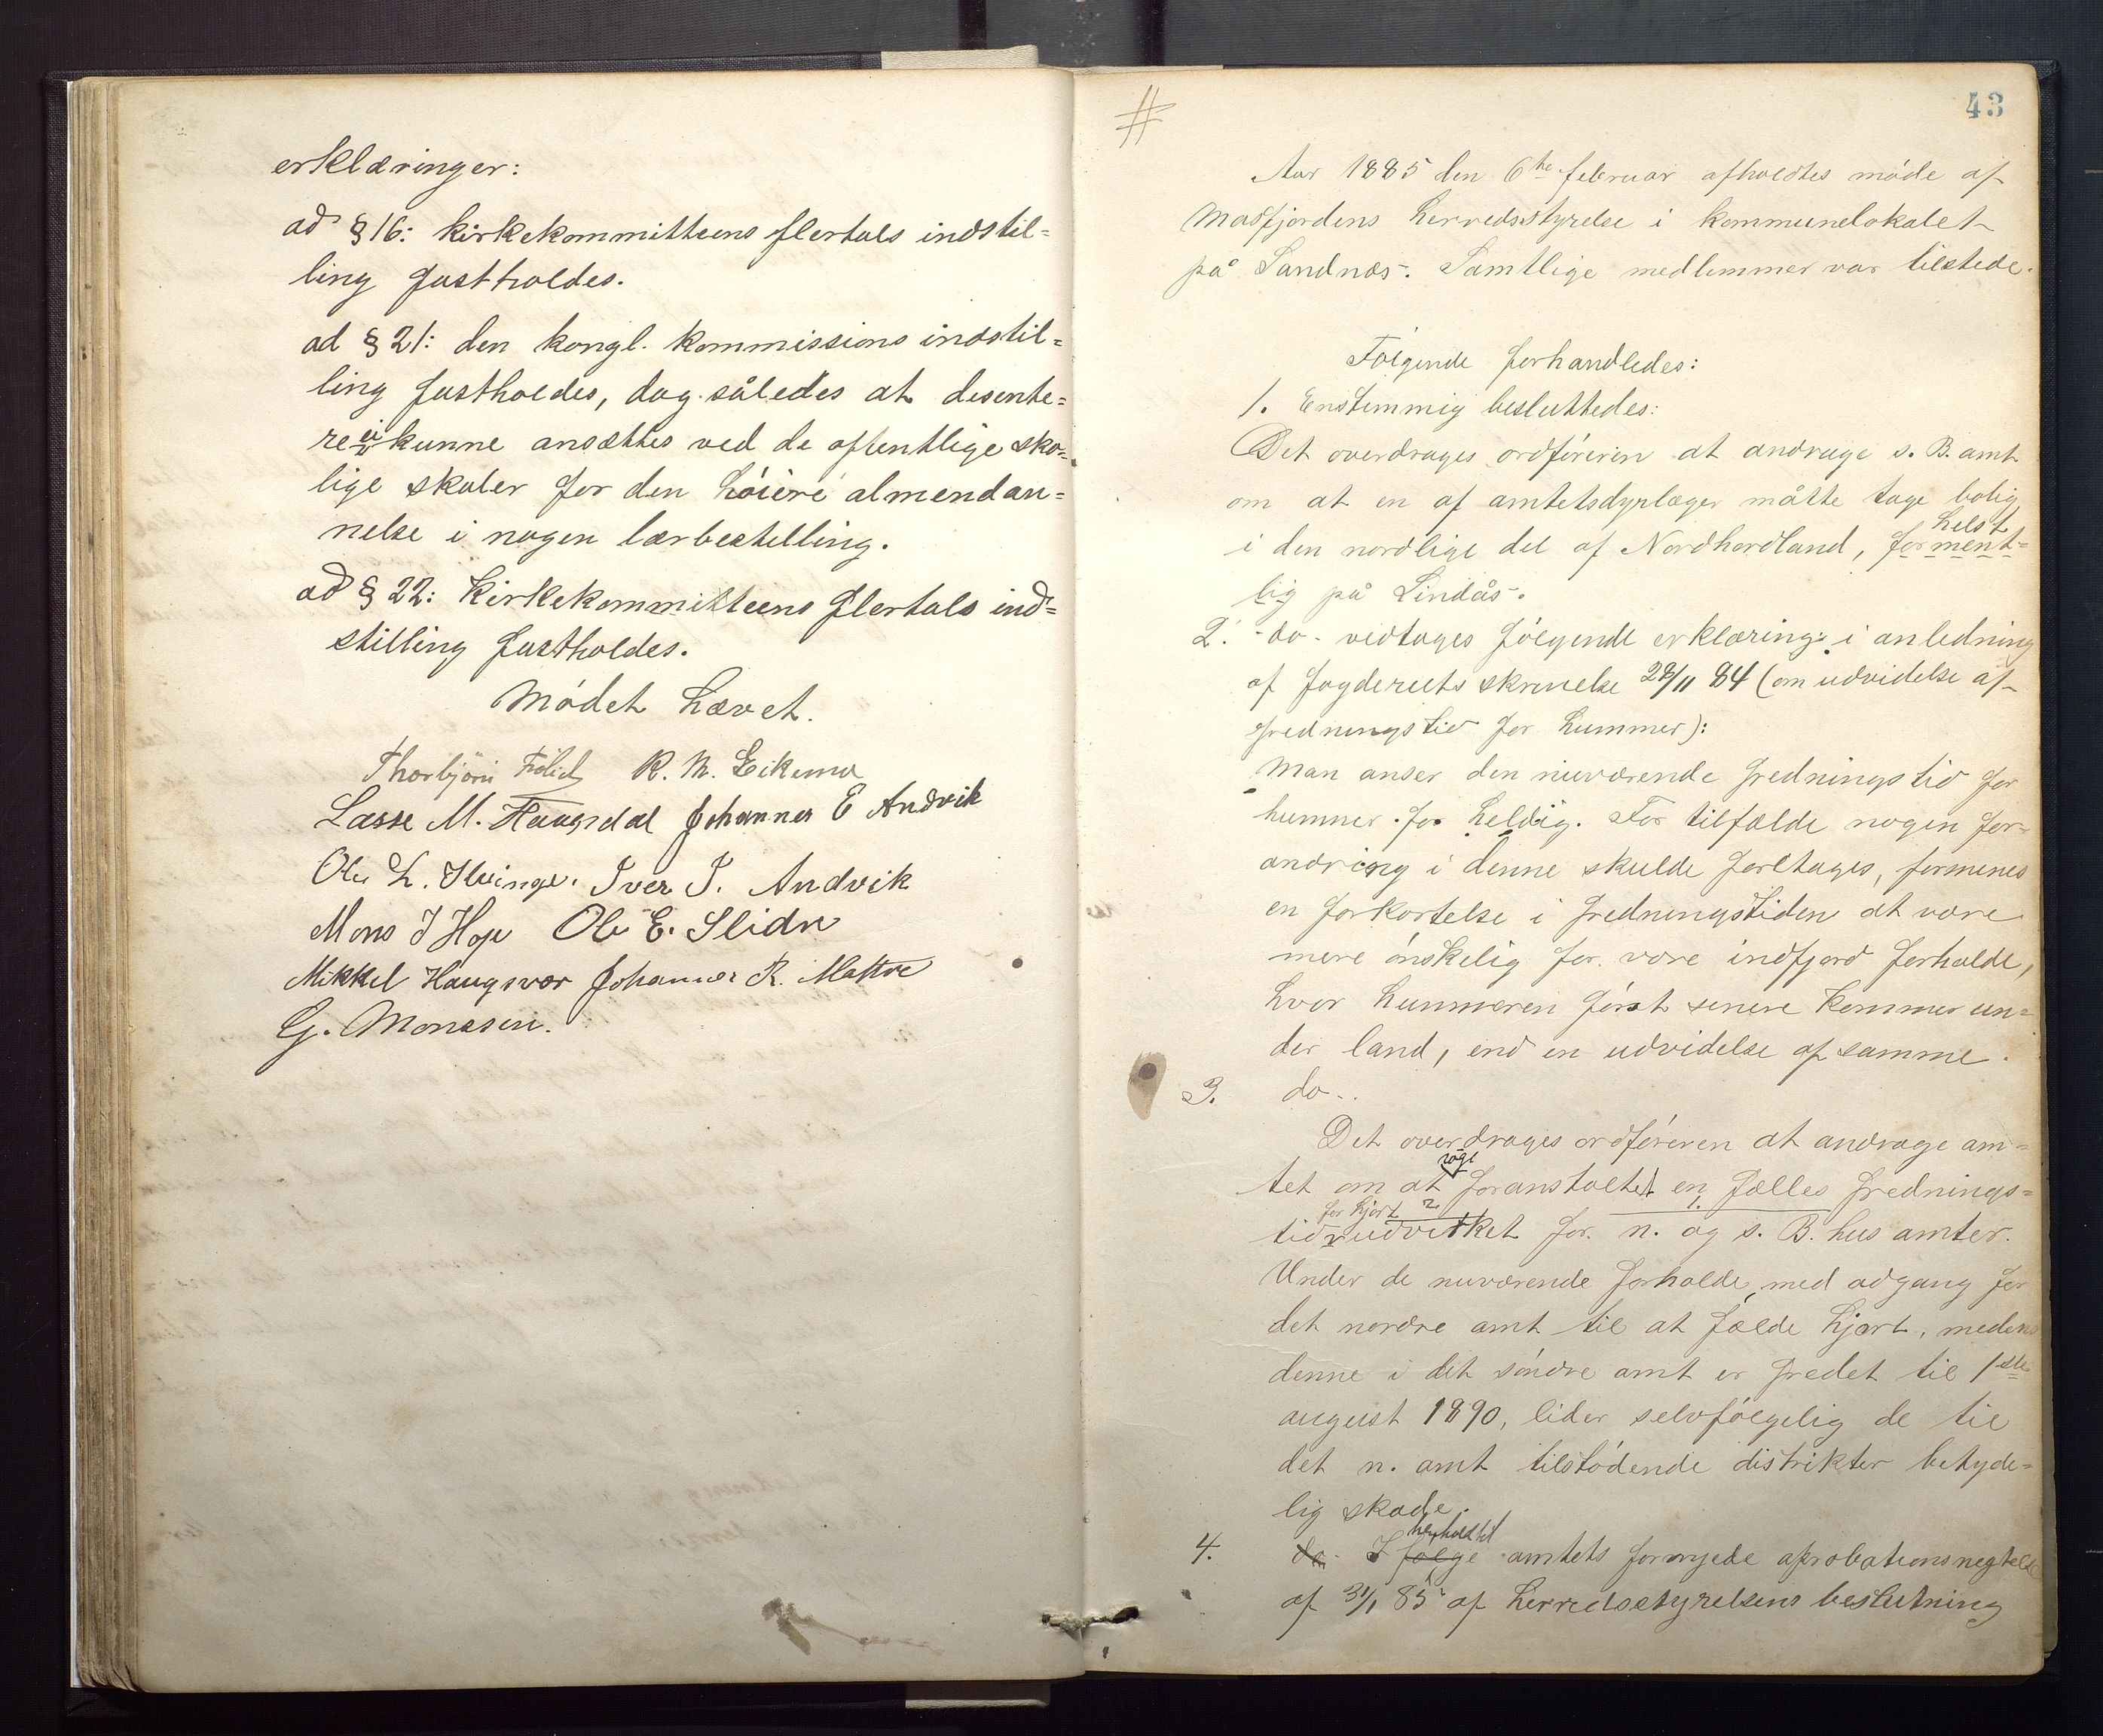 erklæringer:
ad § 16: kirkekommitteens flertals indstil=
ling fastholdes.
ad § 21: den kongl. kommissions indstil=
ling fastholdes, dog således at desente=
re ei kunne ansættes ved de offentlige sko=
lige skoler for den høiere almendan=
nelse i nogen lærbestelling.
ad § 22: Kirkekommitteens flertals ind=
stilling fastholdes.
Mødet hævet.
Thorbjørn Frølid R. M. Eikemo
Lasse M. Haugsdal Johannes E Andvik
Ole L. Kvinge. Iver I. Andvik
Mons J Hope Ole E. Slidre
Mikkel Haugsvær Johannes R. Matre
G. Monssen.
#
43
Aar 1885 den 6te februar afholdtes møde af
Masfjordens herredsstyrelse i kommunelokalet
på Sandnæs. Samtlige medlemmer var tilstede.
Følgende forhandledes:
1. Enstemmig besluttedes:
Det overdrages ordføreren at andrage s. B. amt
om at en af amtetsdyrlæger måtte tage bolig
helst
i den nordlige del af Nordhordland, forment=
lig på Lindås.
2. -do- vedtoges følgende erklæring i anledning
af fogderiets skrivelse 29/11 84 (om udvidelse af
fredningstid for hummer):
Man anser den nuværende fredningstid for
hummer for heldig. For tilfælde nogen for=
andring i denne skulde foretages, formenes
en forkortelse i fredningstiden at være
mere ønskelig for vore indfjord forholde,
hvor hummeren først senere kommer un=
der land, end en udvidelse af samme.
3. do..
Det overdrages ordføreren at andrage am=
tet om at søge foranstaltet en fælles frednings=
for hjort 2 1.
tid udvirket for n. og s. B. hus amter.
Under de nuværende forholde, med adgang for
det nordre amt til at fælde hjort, medens
denne i det søndre amt er fredet til 1ste
august 1890, lider selvfølgelig de til
det n. amt tilstødende distrikter betyde=
lig skade.
henholdtil
4. do. I følge amtets fornyede aprobationsnegtelse
af 31/1 85 af herredsstyrelsens beslutning